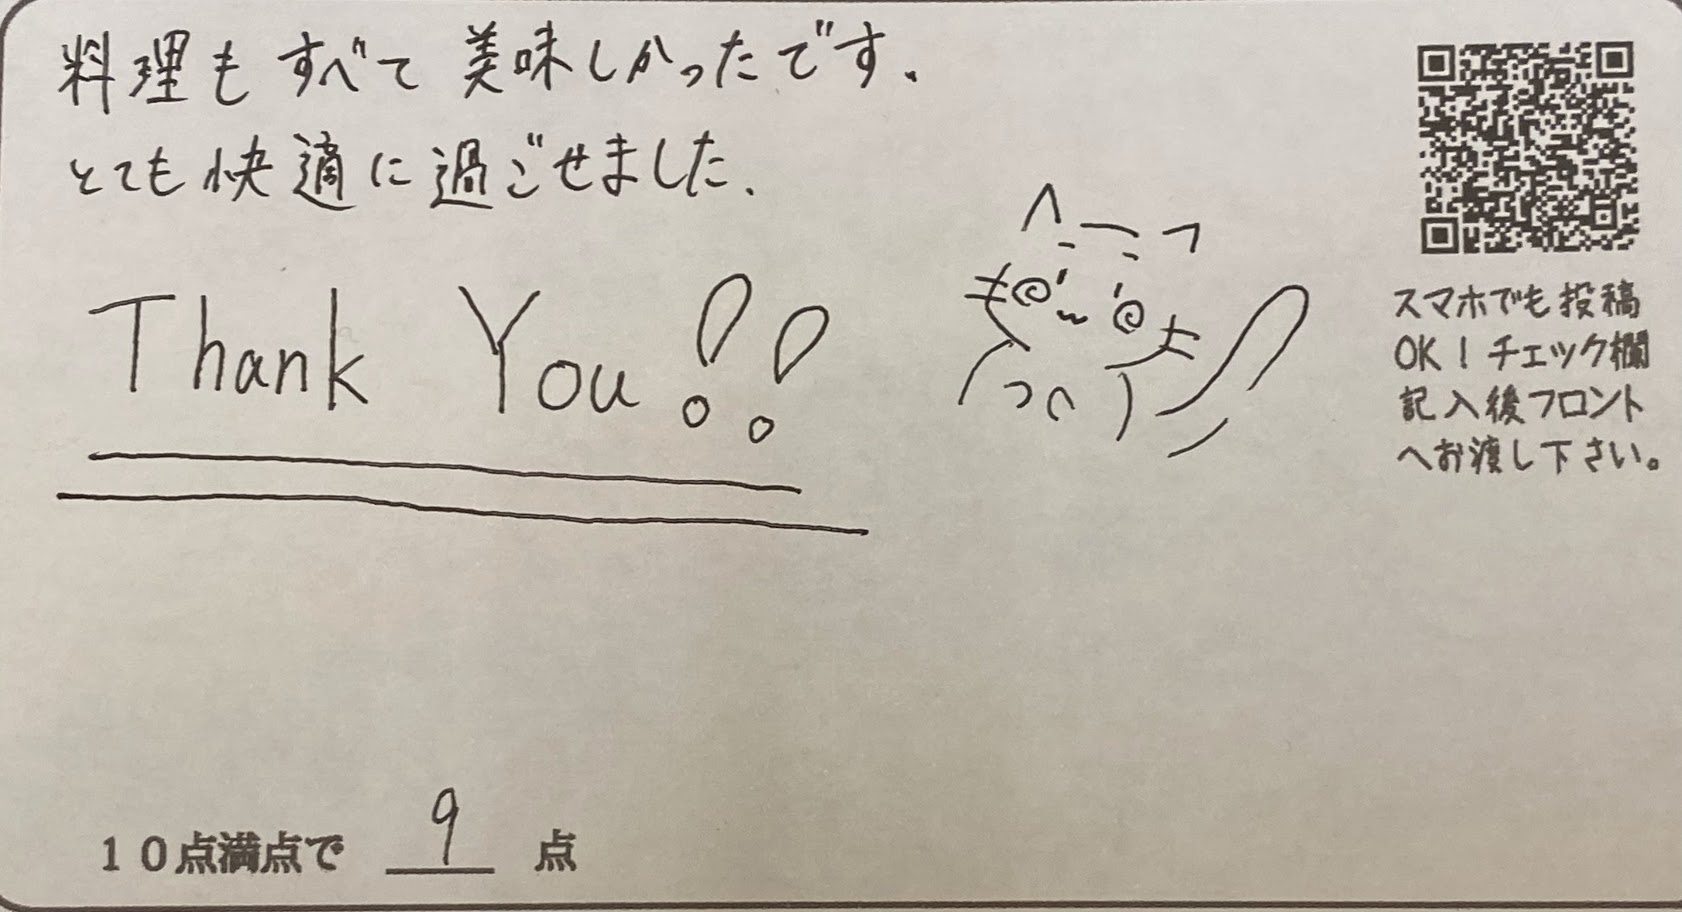 料理もすべて美味しかったです.
とても快適に過ごせました.
Thank You!!
スマホでも投稿
OK！チェック欄
記入後フロント
へお渡し下さい。
１０点満点で 9 点